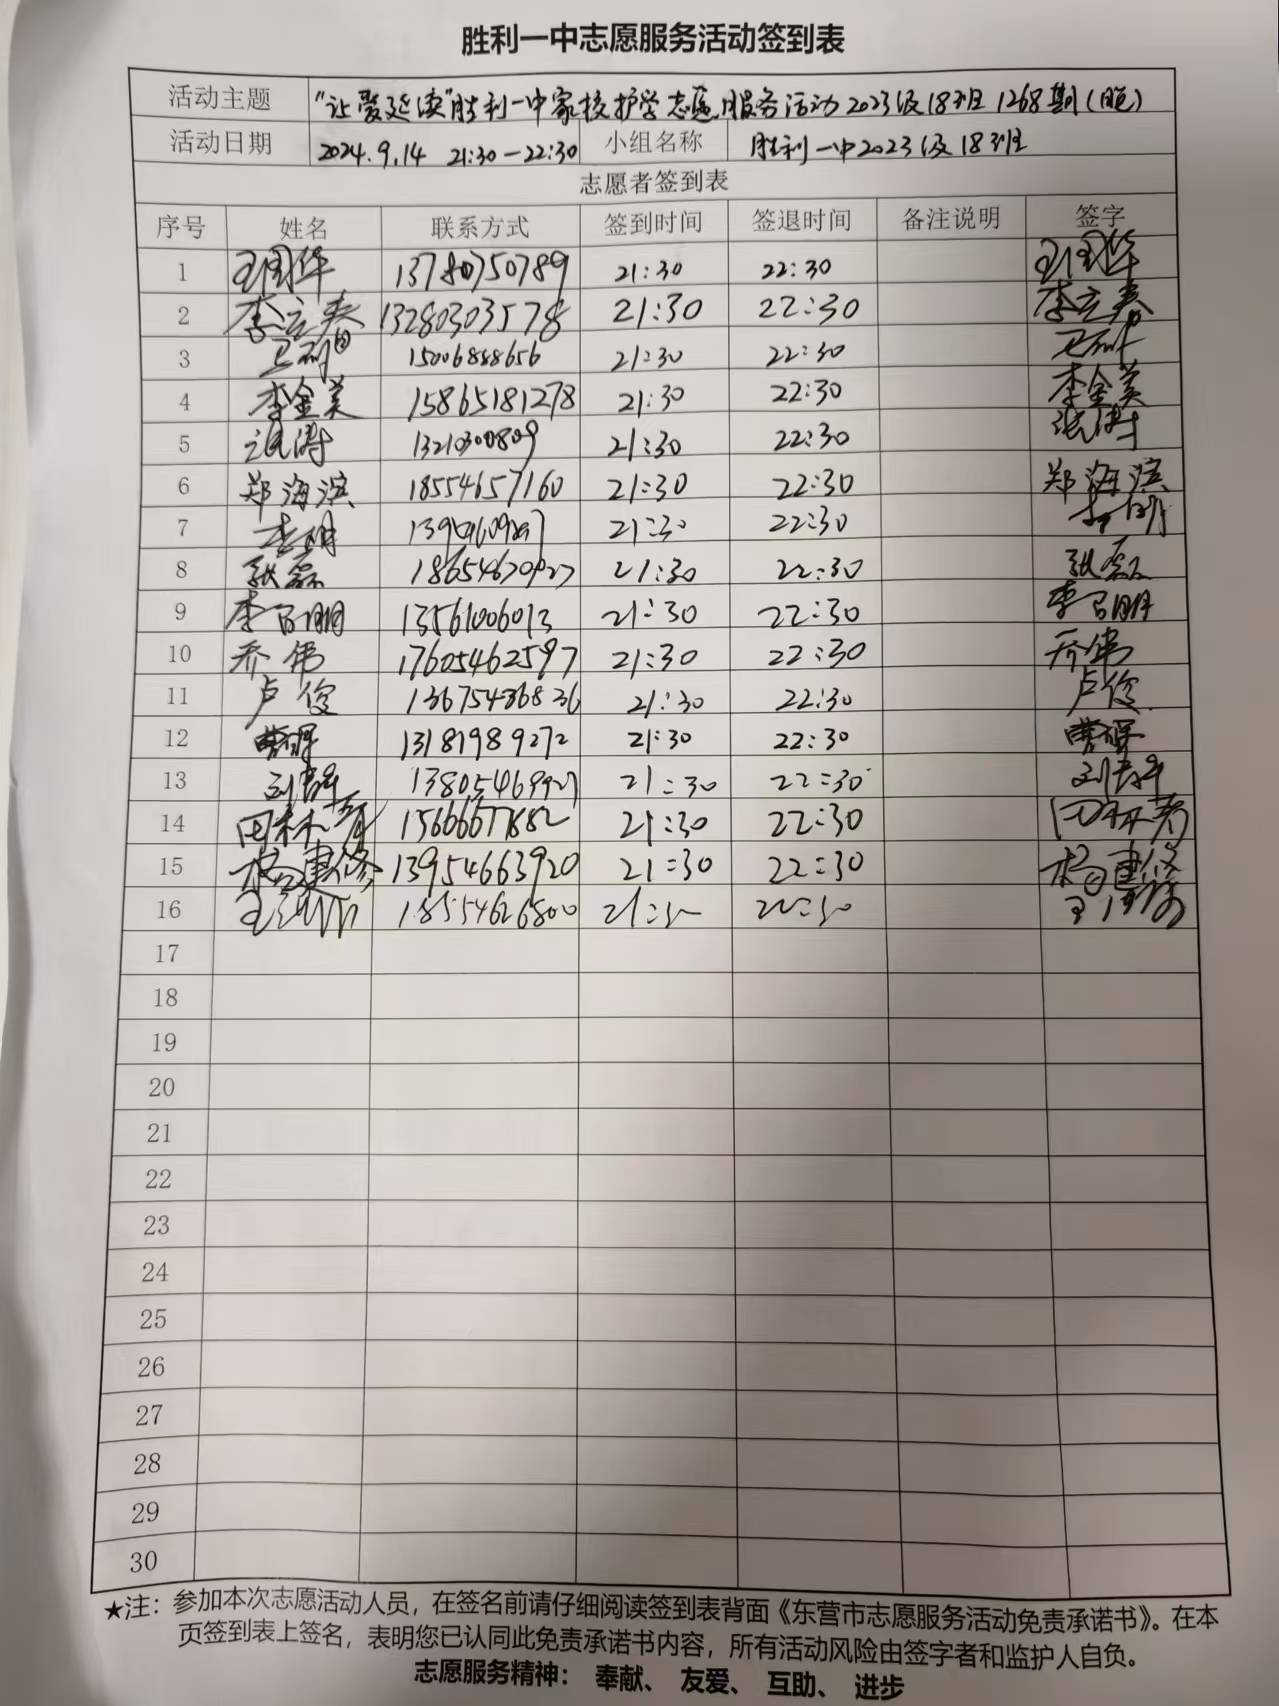 胜利一中志愿服务活动签到表
活动主题 "让爱延续"胜利一中家校护学志愿服务活动2023级18班1268期(晚)
活动日期 2024.9.14 21:30—22:30 小组名称 胜利一中2023级18班
志愿者签到表
序号 姓名 联系方式 签到时间 签退时间 备注说明 签字
1 王国华 13780750789 21:30 22:30 王国华
2 李立春 13280303578 21:30 22:30 李立春
3 15006888656 21:30 22:30
4 李金美 15865181278 21:30 22:30 李金美
5 张涛 13210300809 21:30 22:30 张涛
6 郑海滨 18554657160 21:30 22:30 郑海滨
7 李明 21:30 22:30 李明
8 张磊 21:30 22:30 张磊
9 13561006013 21:30 22:30
10 乔伟 17605462597 21:30 22:30 乔伟
11 卢俊 21:30 22:30 卢俊
12 13181989272 21:30 22:30
13 刘静 21:30 22:30 刘静
14 21:30 22:30
15 13954663920 21:30 22:30
16 18554626800 21:30 22:30
17
18
19
20
21
22
23
24
25
26
27
28
29
30
★注：参加本次志愿活动人员，在签名前请仔细阅读签到表背面《东营市志愿服务活动免责承诺书》。在本
页签到表上签名，表明您已认同此免责承诺书内容，所有活动风险由签字者和监护人自负。
志愿服务精神： 奉献、 友爱、 互助、 进步